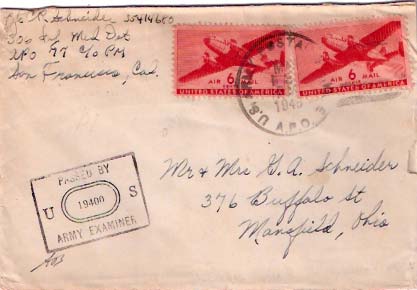 Schneider 35414680
Inf Med Det
APO 77 c/o PM
San Francisco, Cal.
6¢ AIR MAIL
UNITED STATES OF AMERICA
6¢ AIR MAIL
UNITED STATES OF AMERICA
U.S. A.P.O.
PASSED BY
U 19400 S
ARMY EXAMINER
Mr & Mrs G.A. Schneider
376 Buffalo St
Mansfield, Ohio